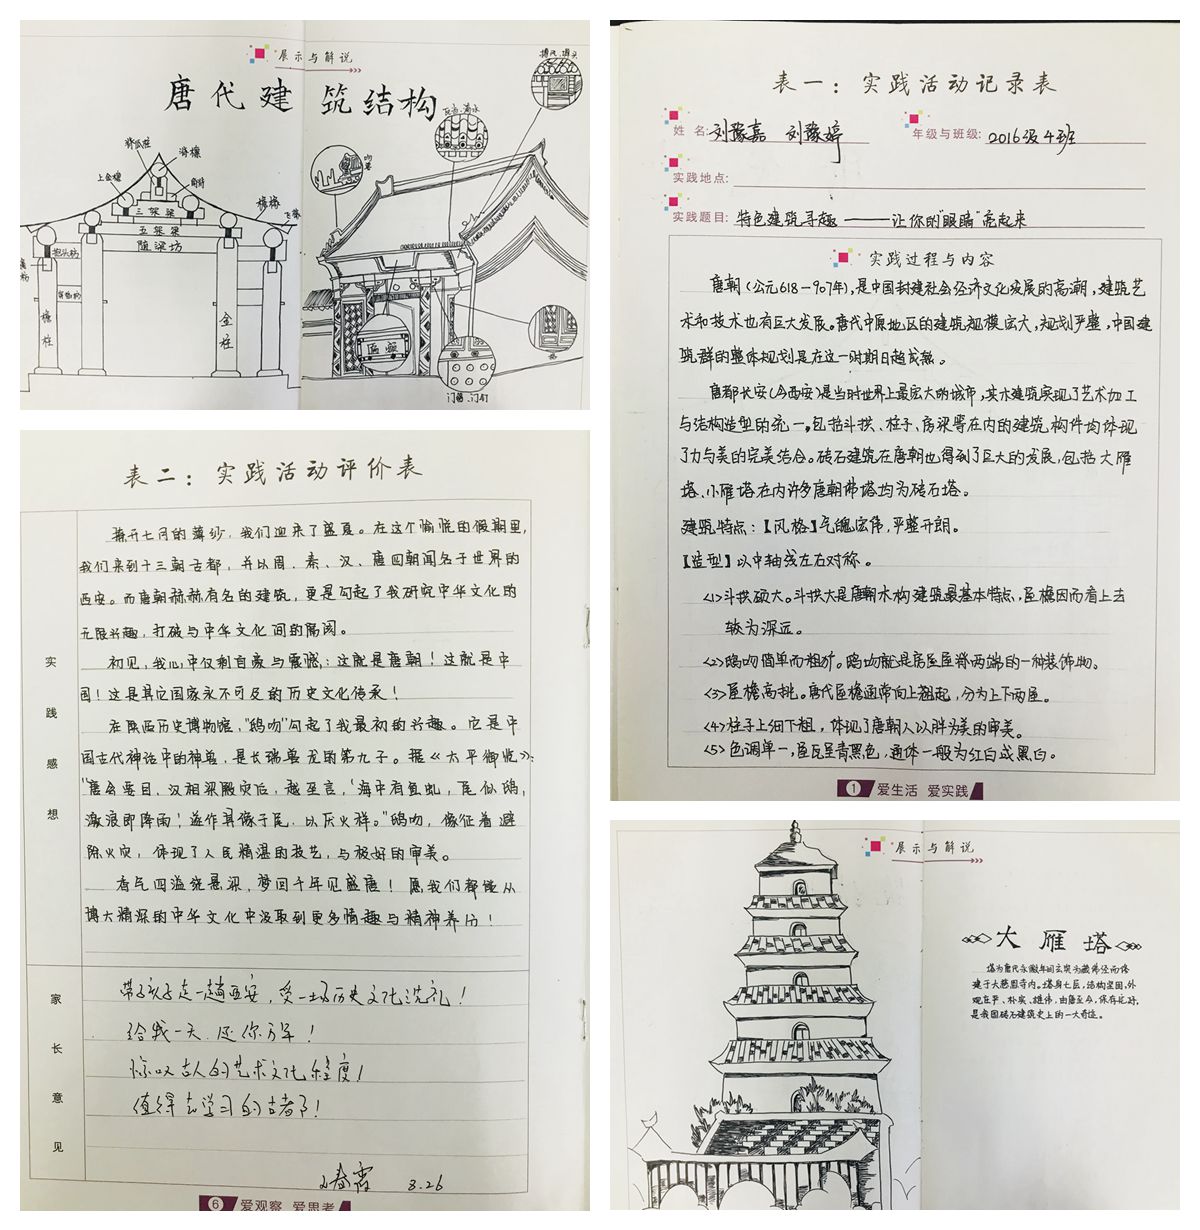 展示与解说
唐代建筑结构
脊瓜柱
脊檩
上金檩
角背
三架梁
五架梁
随梁枋
檐椽
飞椽
抱头枋
檐柱
金柱
瓦当·滴水
吻兽
匾额
门簪、门钉
表一：实践活动记录表
姓 名：刘豫嘉 刘豫婷
年级与班级：2016级4班
实践地点：
实践题目：特色建筑寻趣——让你的"眼睛"亮起来
实践过程与内容
唐朝(公元618—907年)，是中国封建社会经济文化发展的高潮，建筑艺
术和技术也有巨大发展。唐代中原地区的建筑规模宏大，规划严整，中国建
筑群的整体规划是在这一时期日趋成熟。
唐都长安(今西安)是当时世界上最宏大的城市，其木建筑实现了艺术加工
与结构造型的统一，包括斗拱、柱子、房梁等在内的建筑构件均体现
了力与美的完美结合。砖石建筑在唐朝也得到了巨大的发展，包括大雁
塔、小雁塔在内许多唐朝佛塔均为砖石塔。
建筑特点：【风格】气魄宏伟，严整开朗。
【造型】以中轴线左右对称。
<1>斗拱硕大。斗拱大是唐朝木构建筑最基本特点，屋檐因而看上去
较为深远。
<2>鸱吻简单而粗犷。鸱吻就是房屋屋脊两端的一种装饰物。
<3>屋檐高挑。唐代屋檐通常向上翘起，分为上下两层。
<4>柱子上细下粗，体现了唐朝人以胖为美的审美。
<5>色调单一，屋瓦呈青黑色，通体一般为红白或黑白。
1 爱生活 爱实践
表二：实践活动评价表
实践感想
掀开七月的薄纱，我们迎来了盛夏。在这个愉悦的假期里，
我们来到十三朝古都，并以周、秦、汉、唐四朝闻名于世界的
西安。而唐朝赫赫有名的建筑，更是勾起了我研究中华文化的
无限兴趣，打破与中华文化间的隔阂。
初见，我心中仅剩自豪与震撼：这就是唐朝！这就是中
国！这是其它国家永不可及的历史文化传承！
在陕西历史博物馆，"鸱吻"勾起了我最初的兴趣。它是中
国古代神话中的神兽，是长瑞兽龙的第九子。据《太平御览》：
"唐会要目，汉相梁殿灾后，越巫言，'海中有鱼虬，尾似鸱，
激浪即降雨！遂作其像于尾，以厌火祥。"鸱吻，象征着避
除火灾，体现了人民精湛的技艺，与极好的审美。
香气四溢绕悬梁，梦回千年见盛唐！愿我们都能从
博大精深的中华文化中汲取到更多情趣与精神养分！
家长意见
带孩子走一趟西安，受一场历史文化洗礼！
给我一天，还你万年！
惊叹古人的艺术文化程度！
值得去学习的古都！
8.26
6 爱观察 爱思考
展示与解说
大雁塔
塔为唐代永徽年间玄奘为藏佛经而修
建于大慈恩寺内。塔身七层，结构坚固，外
观庄严、朴实、雄伟，由唐至今，保存完好，
是我国砖石建筑史上的一大奇迹。